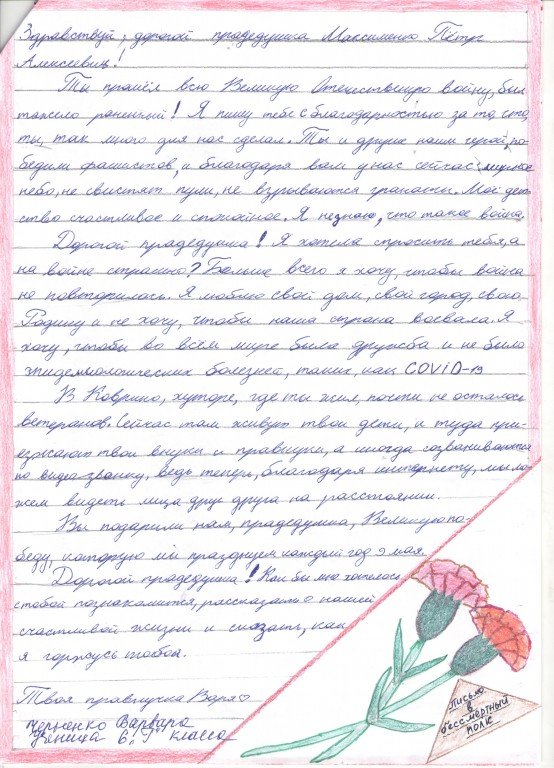 Здравствуй, дорогой прадедушка Максименко Пётр
Алексеевич!
Ты прошёл всю Великую Отечественную войну, был
тяжело раненный! Я пишу тебе с благодарностью за то, что
ты так много для нас сделал. Ты и другие наши герои, по-
бедили фашистов, и благодаря вам у нас сейчас мирное
небо, не свистят пули, не взрываются гранаты. Моё дет-
ство счастливое и спокойное. Я не знаю, что такое война.
Дорогой прадедушка! Я хотела спросить тебя, а
на войне страшно? Больше всего я хочу, чтобы война
не повторилась. Я люблю свой дом, свой город, свою
Родину и не хочу, чтобы наша страна воевала. Я
хочу, чтобы во всём мире была дружба и не было
эпидемиологических болезней, таких, как COViD-19
В Коврино, хуторе, где ты жил, почти не осталось
ветеранов. Сейчас там живут твои дети, и туда при-
езжают твои внуки и правнуки, а иногда созваниваются
по видео-звонку, ведь теперь, благодаря интернету, мы мо-
жем видеть лица друг друга на расстоянии.
Вы подарили нам, прадедушка, Великую по-
беду, которую мы празднуем каждый год 9 мая.
Дорогой прадедушка! Как бы мне хотелось
стобой познакомится, рассказать о нашей
счастливой жизни и сказать, как
я горжусь тобой.
Твоя правнучка Варя♡
Черненко Варвара
Ученица 6 „Г" класса
Письмо
в
бессмертный
полк